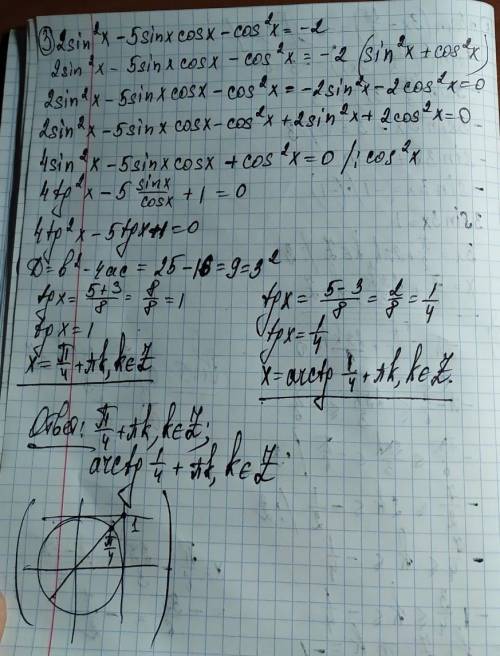 ③ 2sin²x - 5sinx cosx - cos²x = -2
2sin²x - 5sinx cosx - cos²x = -2 (sin²x + cos²x)
2sin²x - 5sinx cosx - cos²x = -2sin²x - 2cos²x = 0
2sin²x - 5sinx cosx - cos²x + 2sin²x + 2cos²x = 0
4sin²x - 5sinx cosx + cos²x = 0 /: cos²x
4tg²x - 5 sinx/cosx + 1 = 0
4tg²x - 5tgx + 1 = 0
D = b² - 4ac = 25 - 16 = 9 = 3²
tgx = (5+3)/8 = 8/8 = 1
tgx = 1
x = π/4 + πk, k∈Z
tgx = (5-3)/8 = 2/8 = 1/4
tgx = 1/4
x = arctg 1/4 + πk, k∈Z.
Ответ: π/4 + πk, k∈Z;
arctg 1/4 + πk, k∈Z
1
π/4